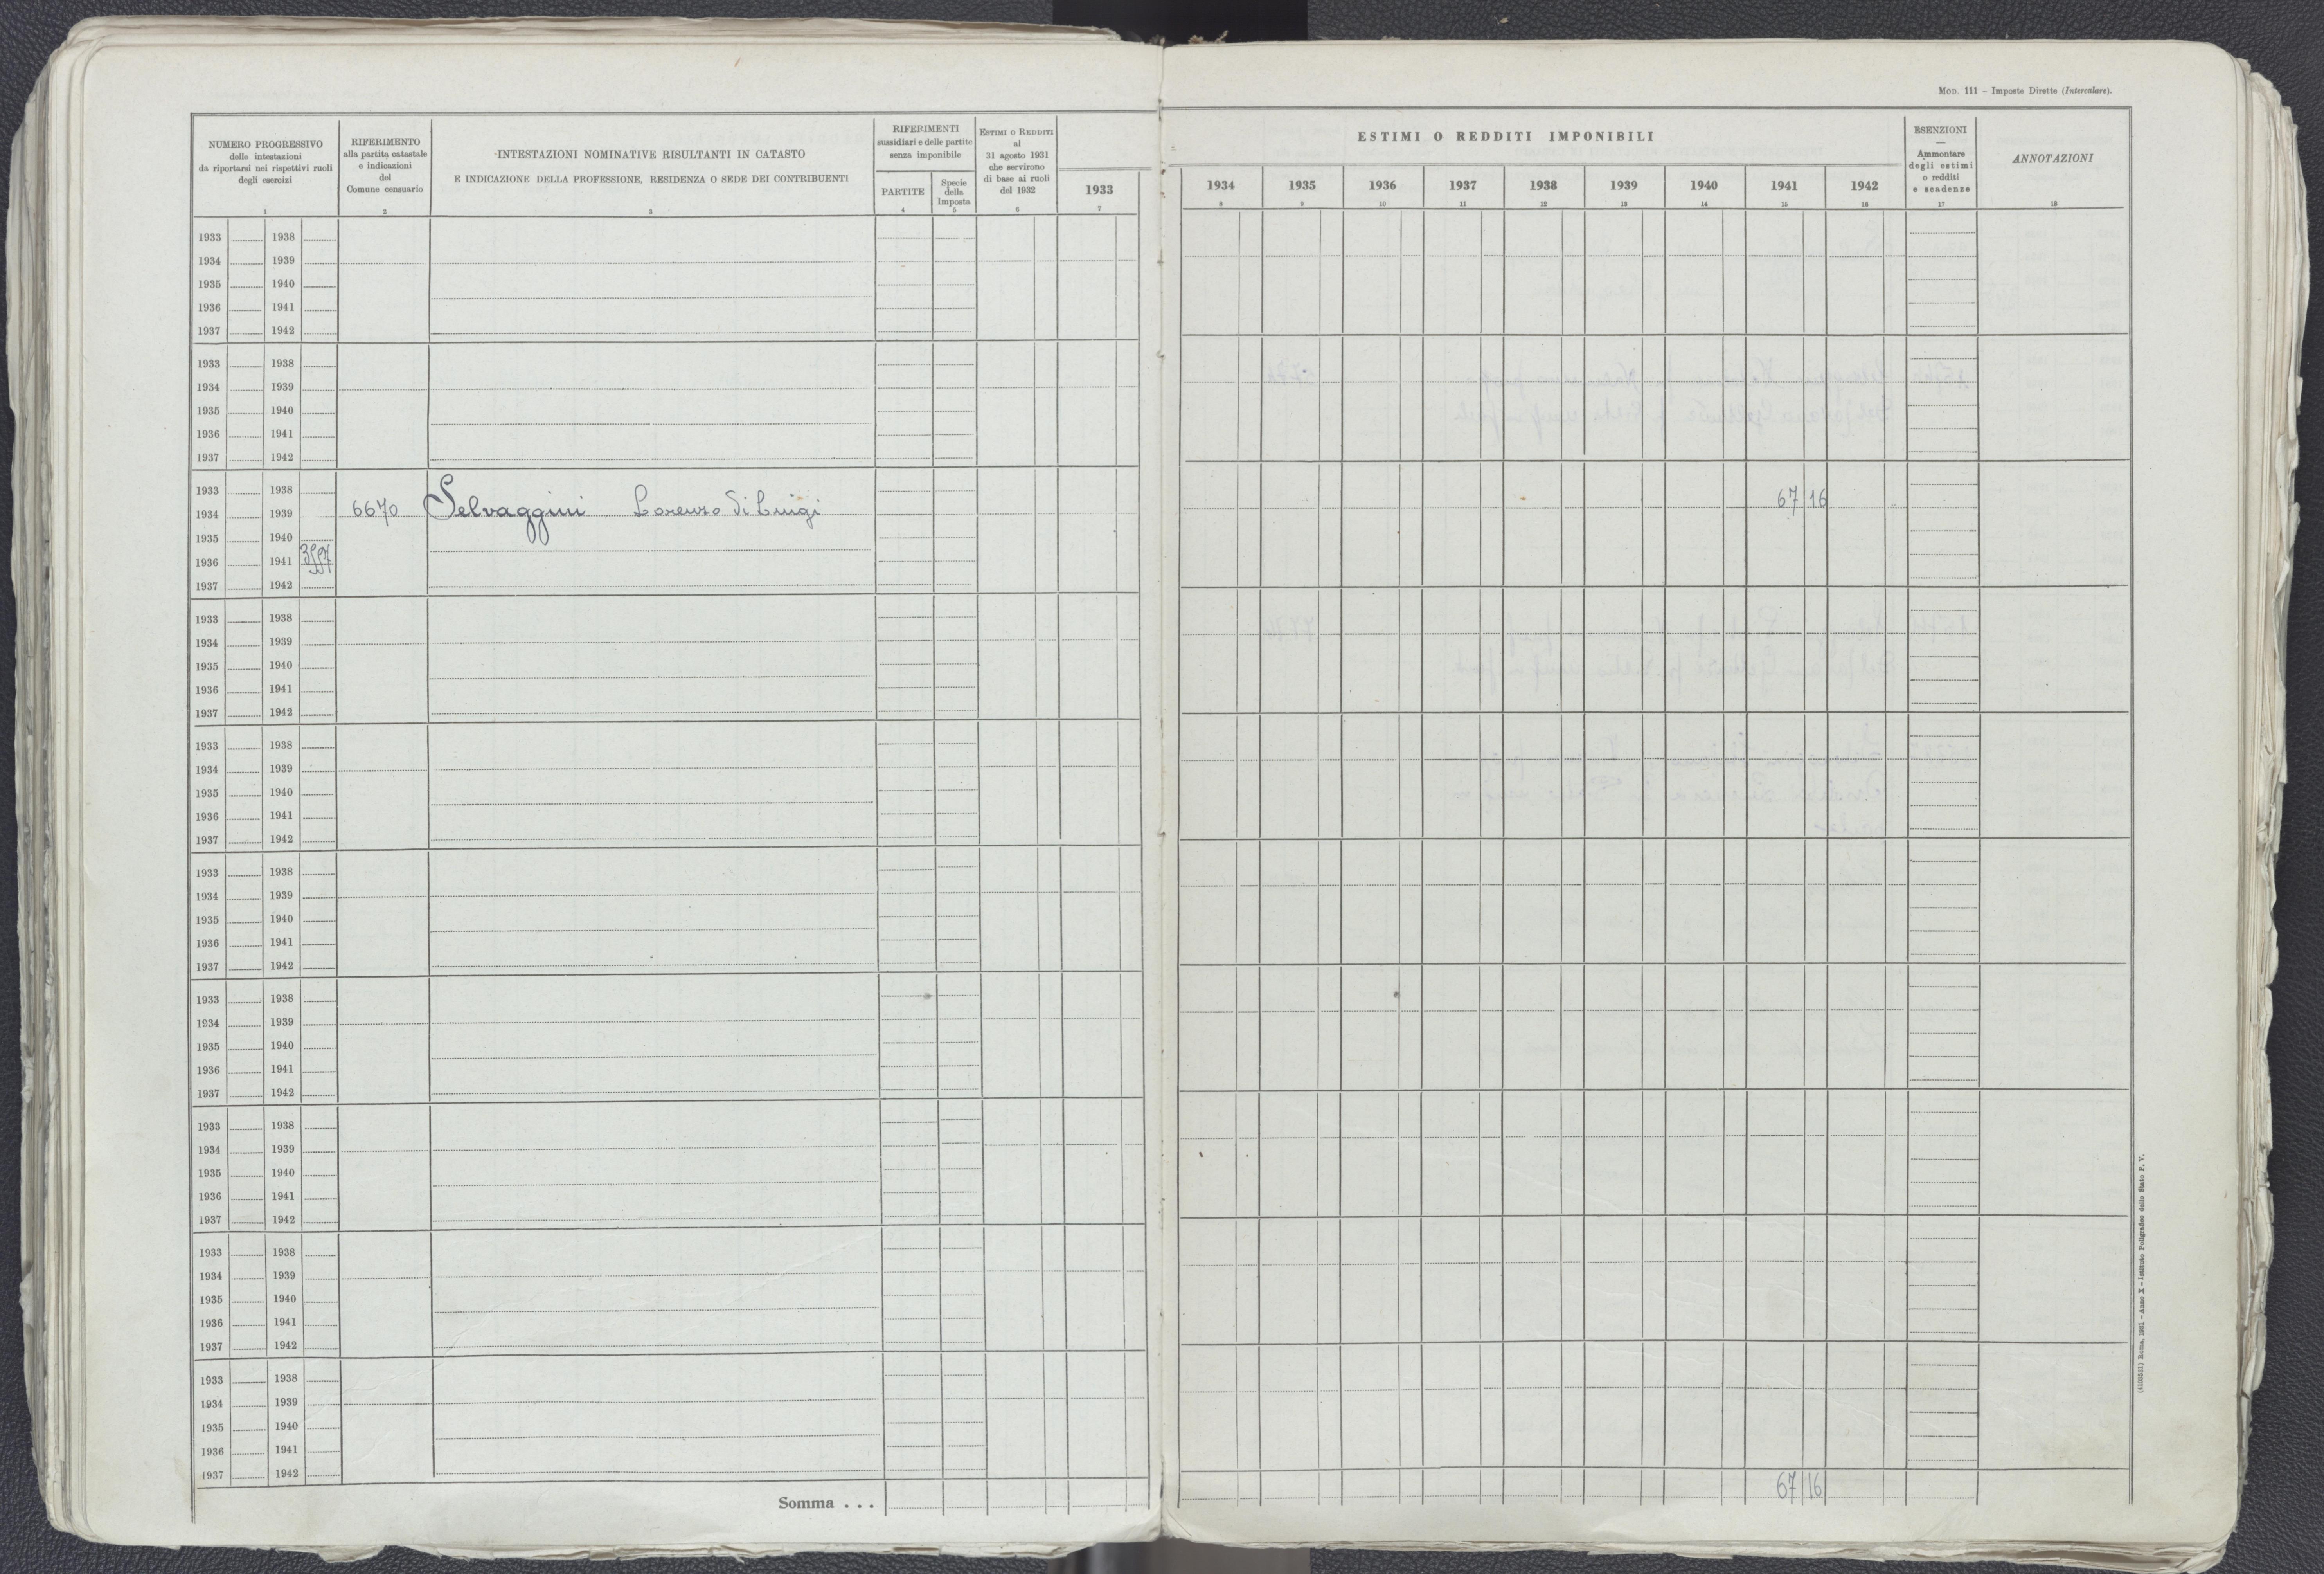 Mod. 111 - Imposte Dirette (Intercalare).
NUMERO PROGRESSIVO
delle intestazioni
da riportarsi nei rispettivi ruoli
degli esercizi
1
RIFERIMENTO
alla partita catastale
e indicazioni
del
Comune censuario
2
INTESTAZIONI NOMINATIVE RISULTANTI IN CATASTO
E INDICAZIONE DELLA PROFESSIONE, RESIDENZA O SEDE DEI CONTRIBUENTI
3
RIFERIMENTI
sussidiari e delle partite
senza imponibile
PARTITE
4
Specie
della
Imposta
5
Estimi o Redditi
al
31 agosto 1931
che servirono
di base ai ruoli
del 1932
6
1933
7
ESTIMI O REDDITI IMPONIBILI
1934 1935 1936 1937 1938 1939 1940 1941 1942
8 9 10 11 12 13 14 15 16
ESENZIONI
Ammontare
degli estimi
o redditi
e scadenze
17
ANNOTAZIONI
18
1933 1938
1934 1939
1935 1940
1936 1941
1937 1942
1933 1938
1934 1939
1935 1940
1936 1941
1937 1942
1933 1938
1934 1939 6670 Selvaggini Lorenzo di Luigi 67 16
1935 1940
1936 1941
1937 1942
1933 1938
1934 1939
1935 1940
1936 1941
1937 1942
1933 1938
1934 1939
1935 1940
1936 1941
1937 1942
1933 1938
1934 1939
1935 1940
1936 1941
1937 1942
1933 1938
1934 1939
1935 1940
1936 1941
1937 1942
1933 1938
1934 1939
1935 1940
1936 1941
1937 1942
1933 1938
1934 1939
1935 1940
1936 1941
1937 1942
1933 1938
1934 1939
1935 1940
1936 1941
1937 1942
Somma . . . 67 16
(4100551) Roma, 1931 - Anno X - Istituto Poligrafico dello Stato P. V.